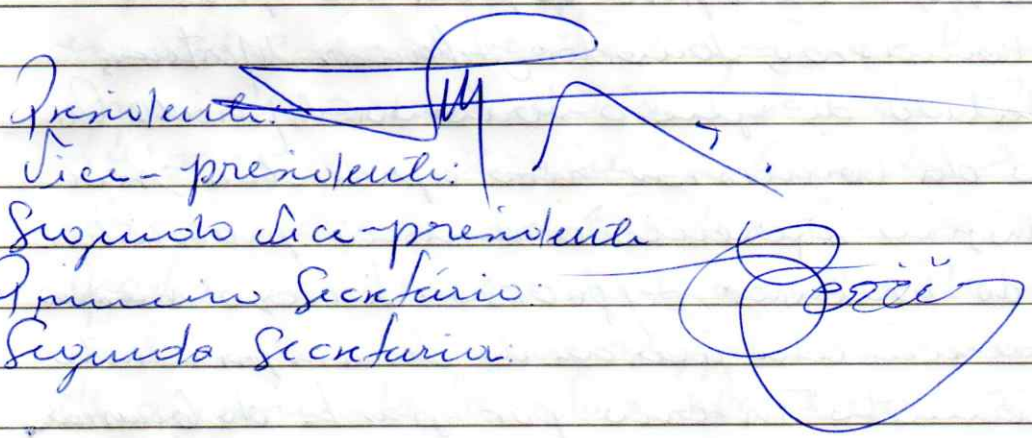 Presidente:
Vice-presidente:
Segundo Vice-presidente
Primeiro Secretário:
Segunda Secretaria: